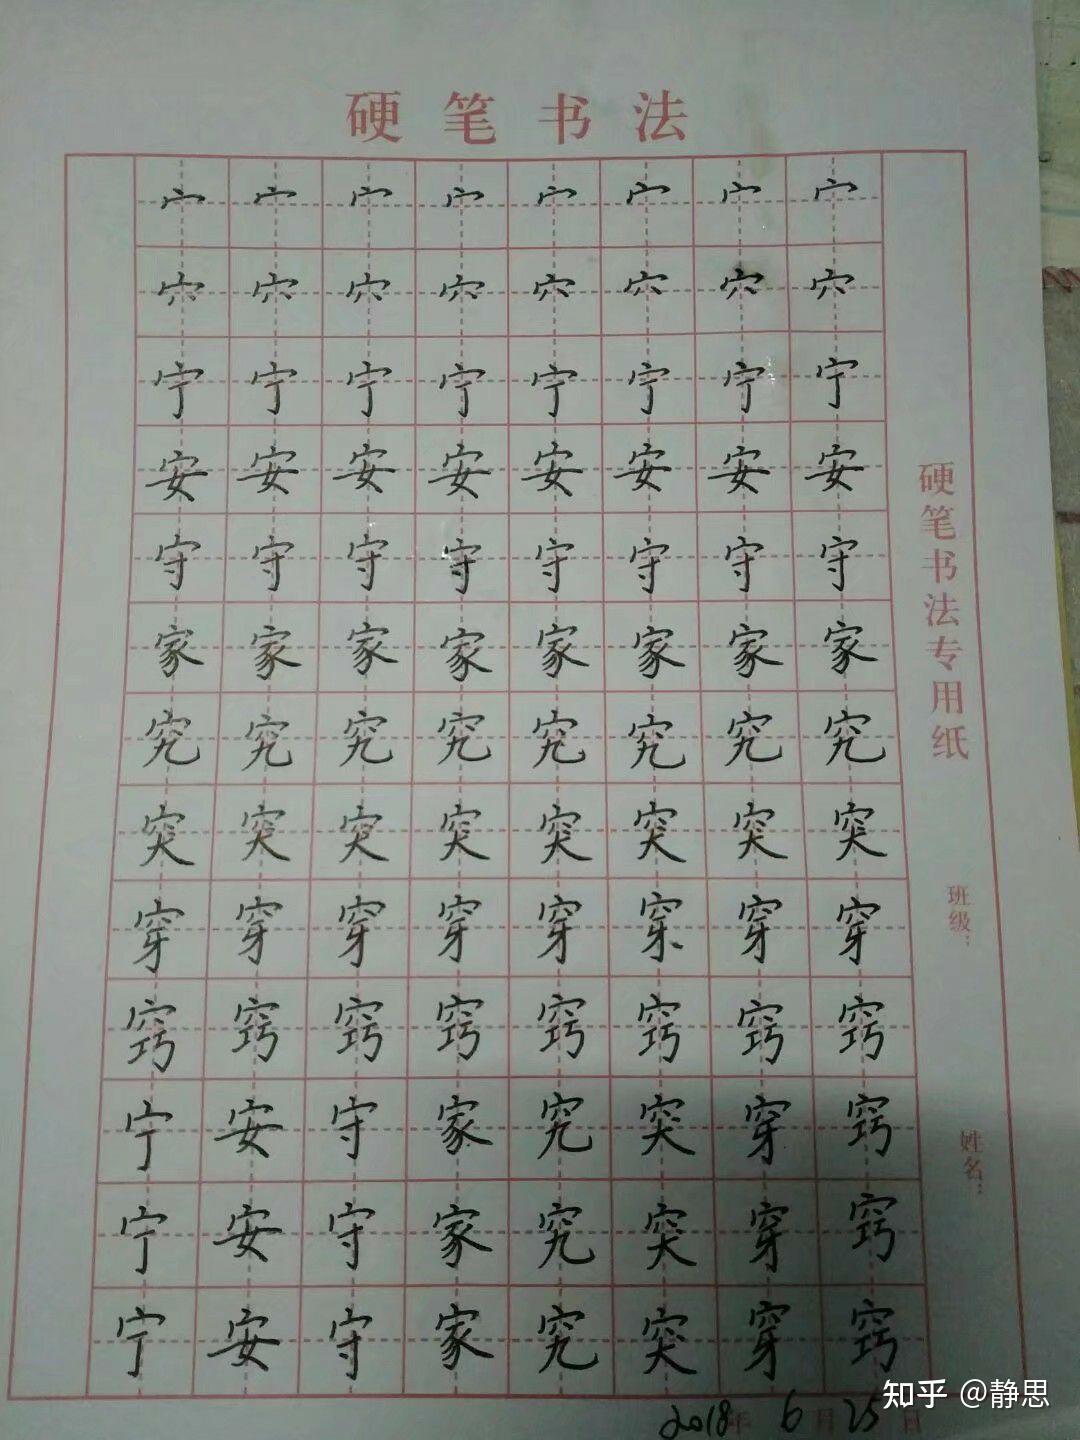 硬笔书法
宀宀宀宀宀宀宀宀
穴穴穴穴穴穴穴穴
宁宁宁宁宁宁宁宁
安安安安安安安安
守守守守守守守守
家家家家家家家家
究究究究究究究究
突突突突突突突突
穿穿穿穿穿穿穿穿
窍窍窍窍窍窍窍窍
宁安守家究突穿窍
宁安守家究突穿窍
宁安守家究突穿窍
硬笔书法专用纸
班级：
姓名：
2018年6月25日
知乎 @静思